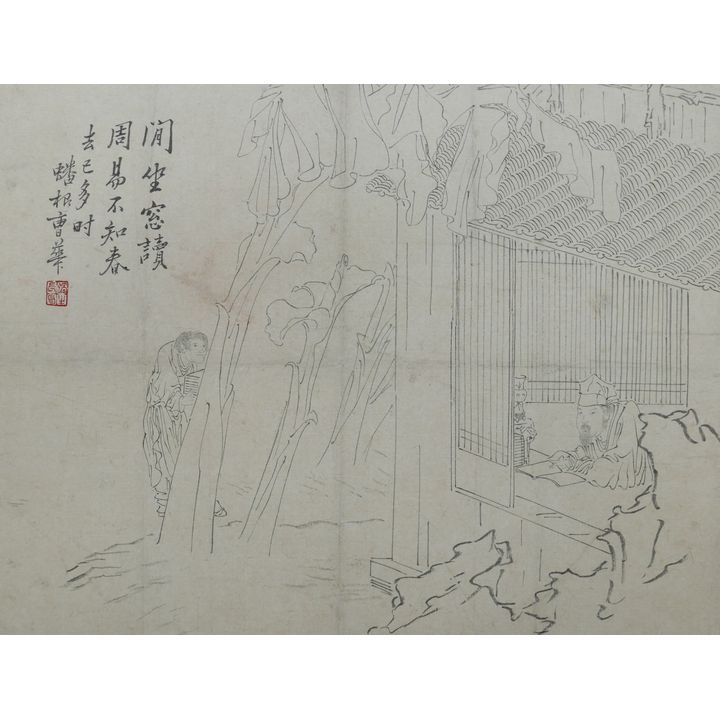 閒坐窓讀
周易不知春
去已多时
蟠根曹華